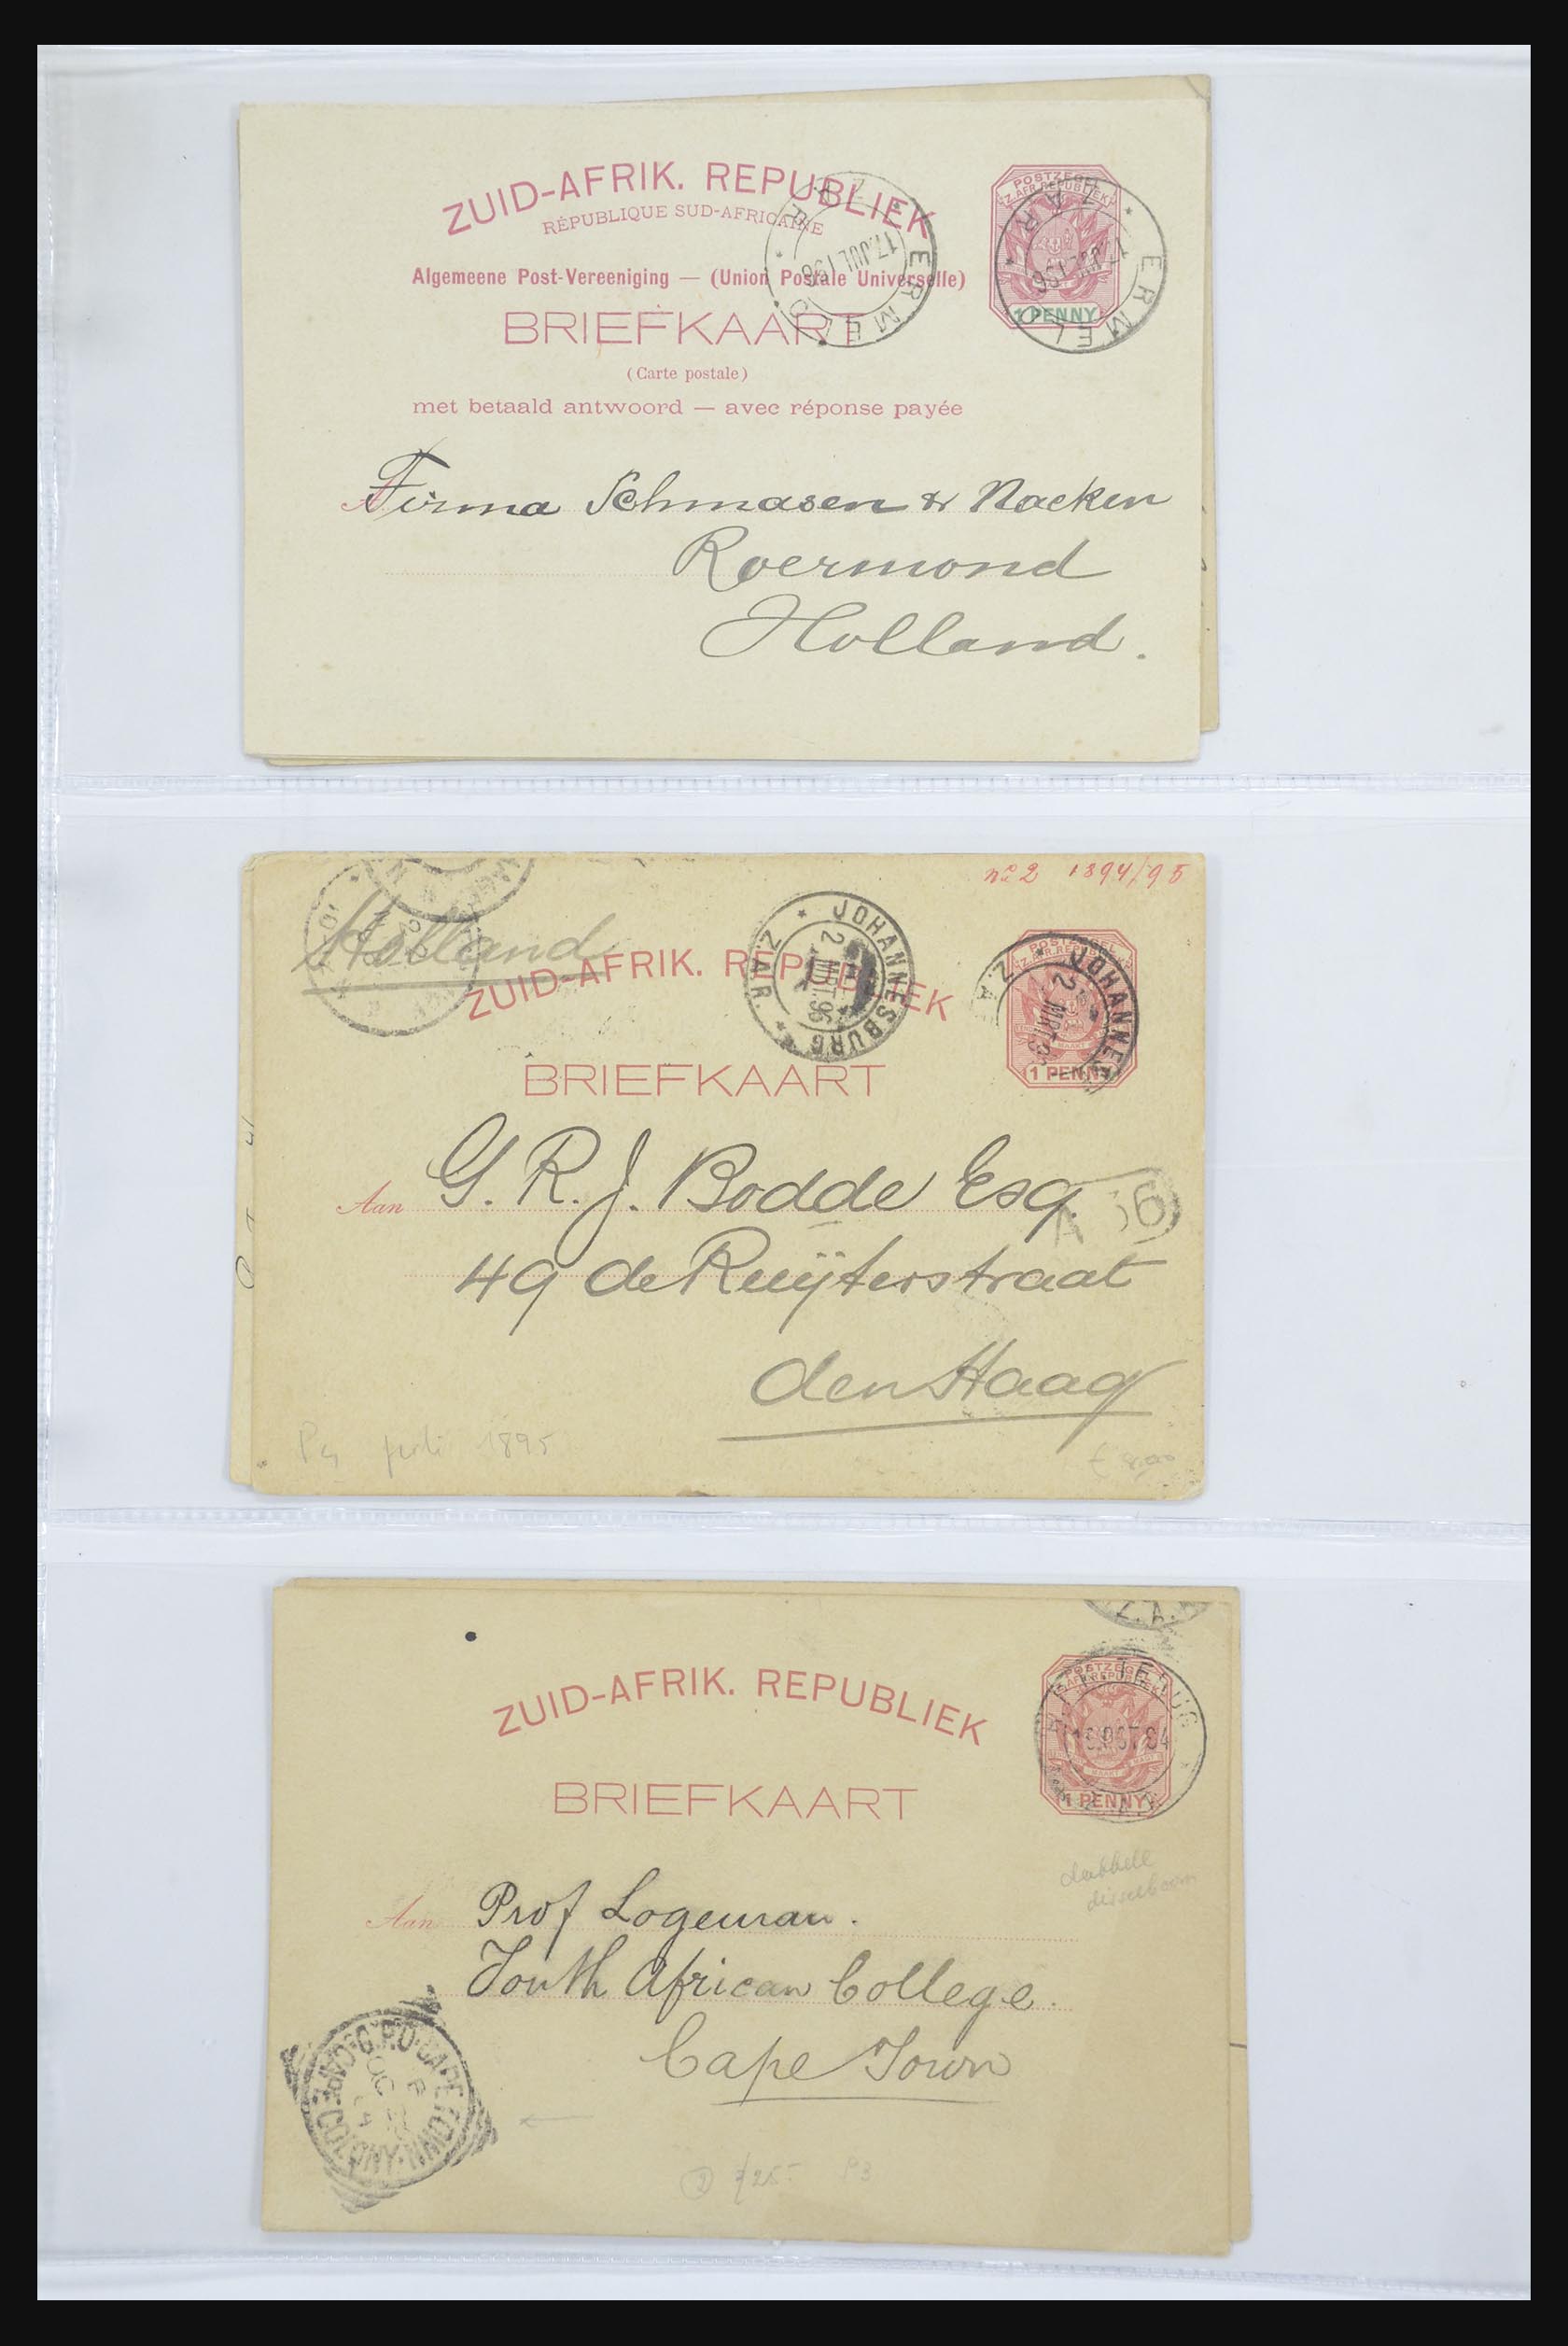 ZUID-AFRIK. REPUBLIEK
RÉPUBLIQUE SUD-AFRICAINE
Algemeene Post-Vereeniging — (Union Postale Universelle)
BRIEFKAART
(Carte postale)
met betaald antwoord — avec réponse payée
POSTZEGEL
Z. AFR. REPUBLIEK
1 PENNY
ERMELO
Z.A.R.
17.JUL.96
ERMELO
Z.A.R.
17.JUL.96
Firma Schmasen & Nacken
Roermond
Holland.
no 2 1894/95
Holland
ZUID-AFRIK. REPUBLIEK
BRIEFKAART
POSTZEGEL
Z. AFR. REPUBLIEK
1 PENNY
JOHANNESBURG
Z.A.R.
2 MRT.96
JOHANNES
2 MRT.9
Aan G. R. J. Bodde Esq.
49 de Ruijterstraat
den Haag
1895
ZUID-AFRIK. REPUBLIEK
BRIEFKAART
POSTZEGEL
Z. AFR. REPUBLIEK
1 PENNY
OCT 94
dubbele
disselboom
Aan Prof Logeman.
South African College.
Cape Town
G.P.O. CAPE TOWN
CAPE COLONY
OC
P3